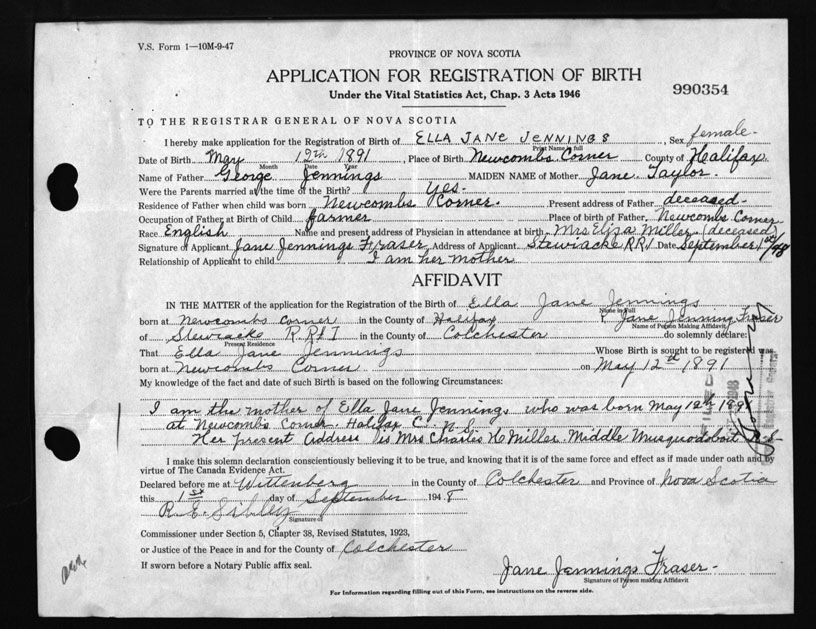 V.S. Form 1—10M-9-47
PROVINCE OF NOVA SCOTIA
APPLICATION FOR REGISTRATION OF BIRTH
Under the Vital Statistics Act, Chap. 3 Acts 1946
990354
TO THE REGISTRAR GENERAL OF NOVA SCOTIA
I hereby make application for the Registration of Birth of ELLA JANE JENNINGS, Sex female-
Print Name in full
Date of Birth May 12th 1891, Place of Birth Newcombs Corner County of Halifax
Month Date Year
Name of Father George Jennings MAIDEN NAME of Mother Jane Taylor.
Were the Parents married at the time of the Birth? Yes-
Residence of Father when child was born Newcombs Corner. Present address of Father deceased-
Occupation of Father at Birth of Child farmer Place of birth of Father Newcombs Corner
Race English Name and present address of Physician in attendance at birth Mrs Eliza Miller (deceased)
Signature of Applicant Jane Jennings Fraser Address of Applicant Stewiacke RR1 Date September 1st/48
Relationship of Applicant to child I am her mother
AFFIDAVIT
IN THE MATTER of the application for the Registration of the Birth of Ella Jane Jennings
Name in Full
born at Newcombs Corner in the County of Halifax I, Jane Jennings Fraser
Name of Person Making Affidavit
of Stewiacke R.R.#1 in the County of Colchester do solemnly declare:
Present Residence
That Ella Jane Jennings Whose Birth is sought to be registered was
born at Newcombs Corner on May 12th 1891
My knowledge of the fact and date of such Birth is based on the following Circumstances:
I am the mother of Ella Jane Jennings who was born May 12th 1891
at Newcombs Corner Halifax C. N.S.
Her present Address is Mrs Charles H Miller Middle Musquodoboit N.S-
FILED
I make this solemn declaration conscientiously believing it to be true, and knowing that it is of the same force and effect as if made under oath and by
virtue of The Canada Evidence Act.
Declared before me at Wittenberg in the County of Colchester and Province of Nova Scotia
this 1st day of September 1948
R. E. Sibley
Signature of
Commissioner under Section 5, Chapter 38, Revised Statutes, 1923,
or Justice of the Peace in and for the County of Colchester
If sworn before a Notary Public affix seal.
Jane Jennings Fraser-
Signature of Person making Affidavit
For Information regarding filling out of this Form, see instructions on the reverse side.